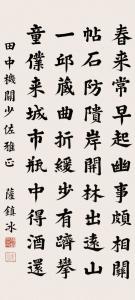 春來常早起幽事頗相關
帖石防隤岸開林出遠山
一邱藏曲折緩步有躋攀
童僕來城市瓶中得酒還
田中機關少佐雅正
薩鎮冰